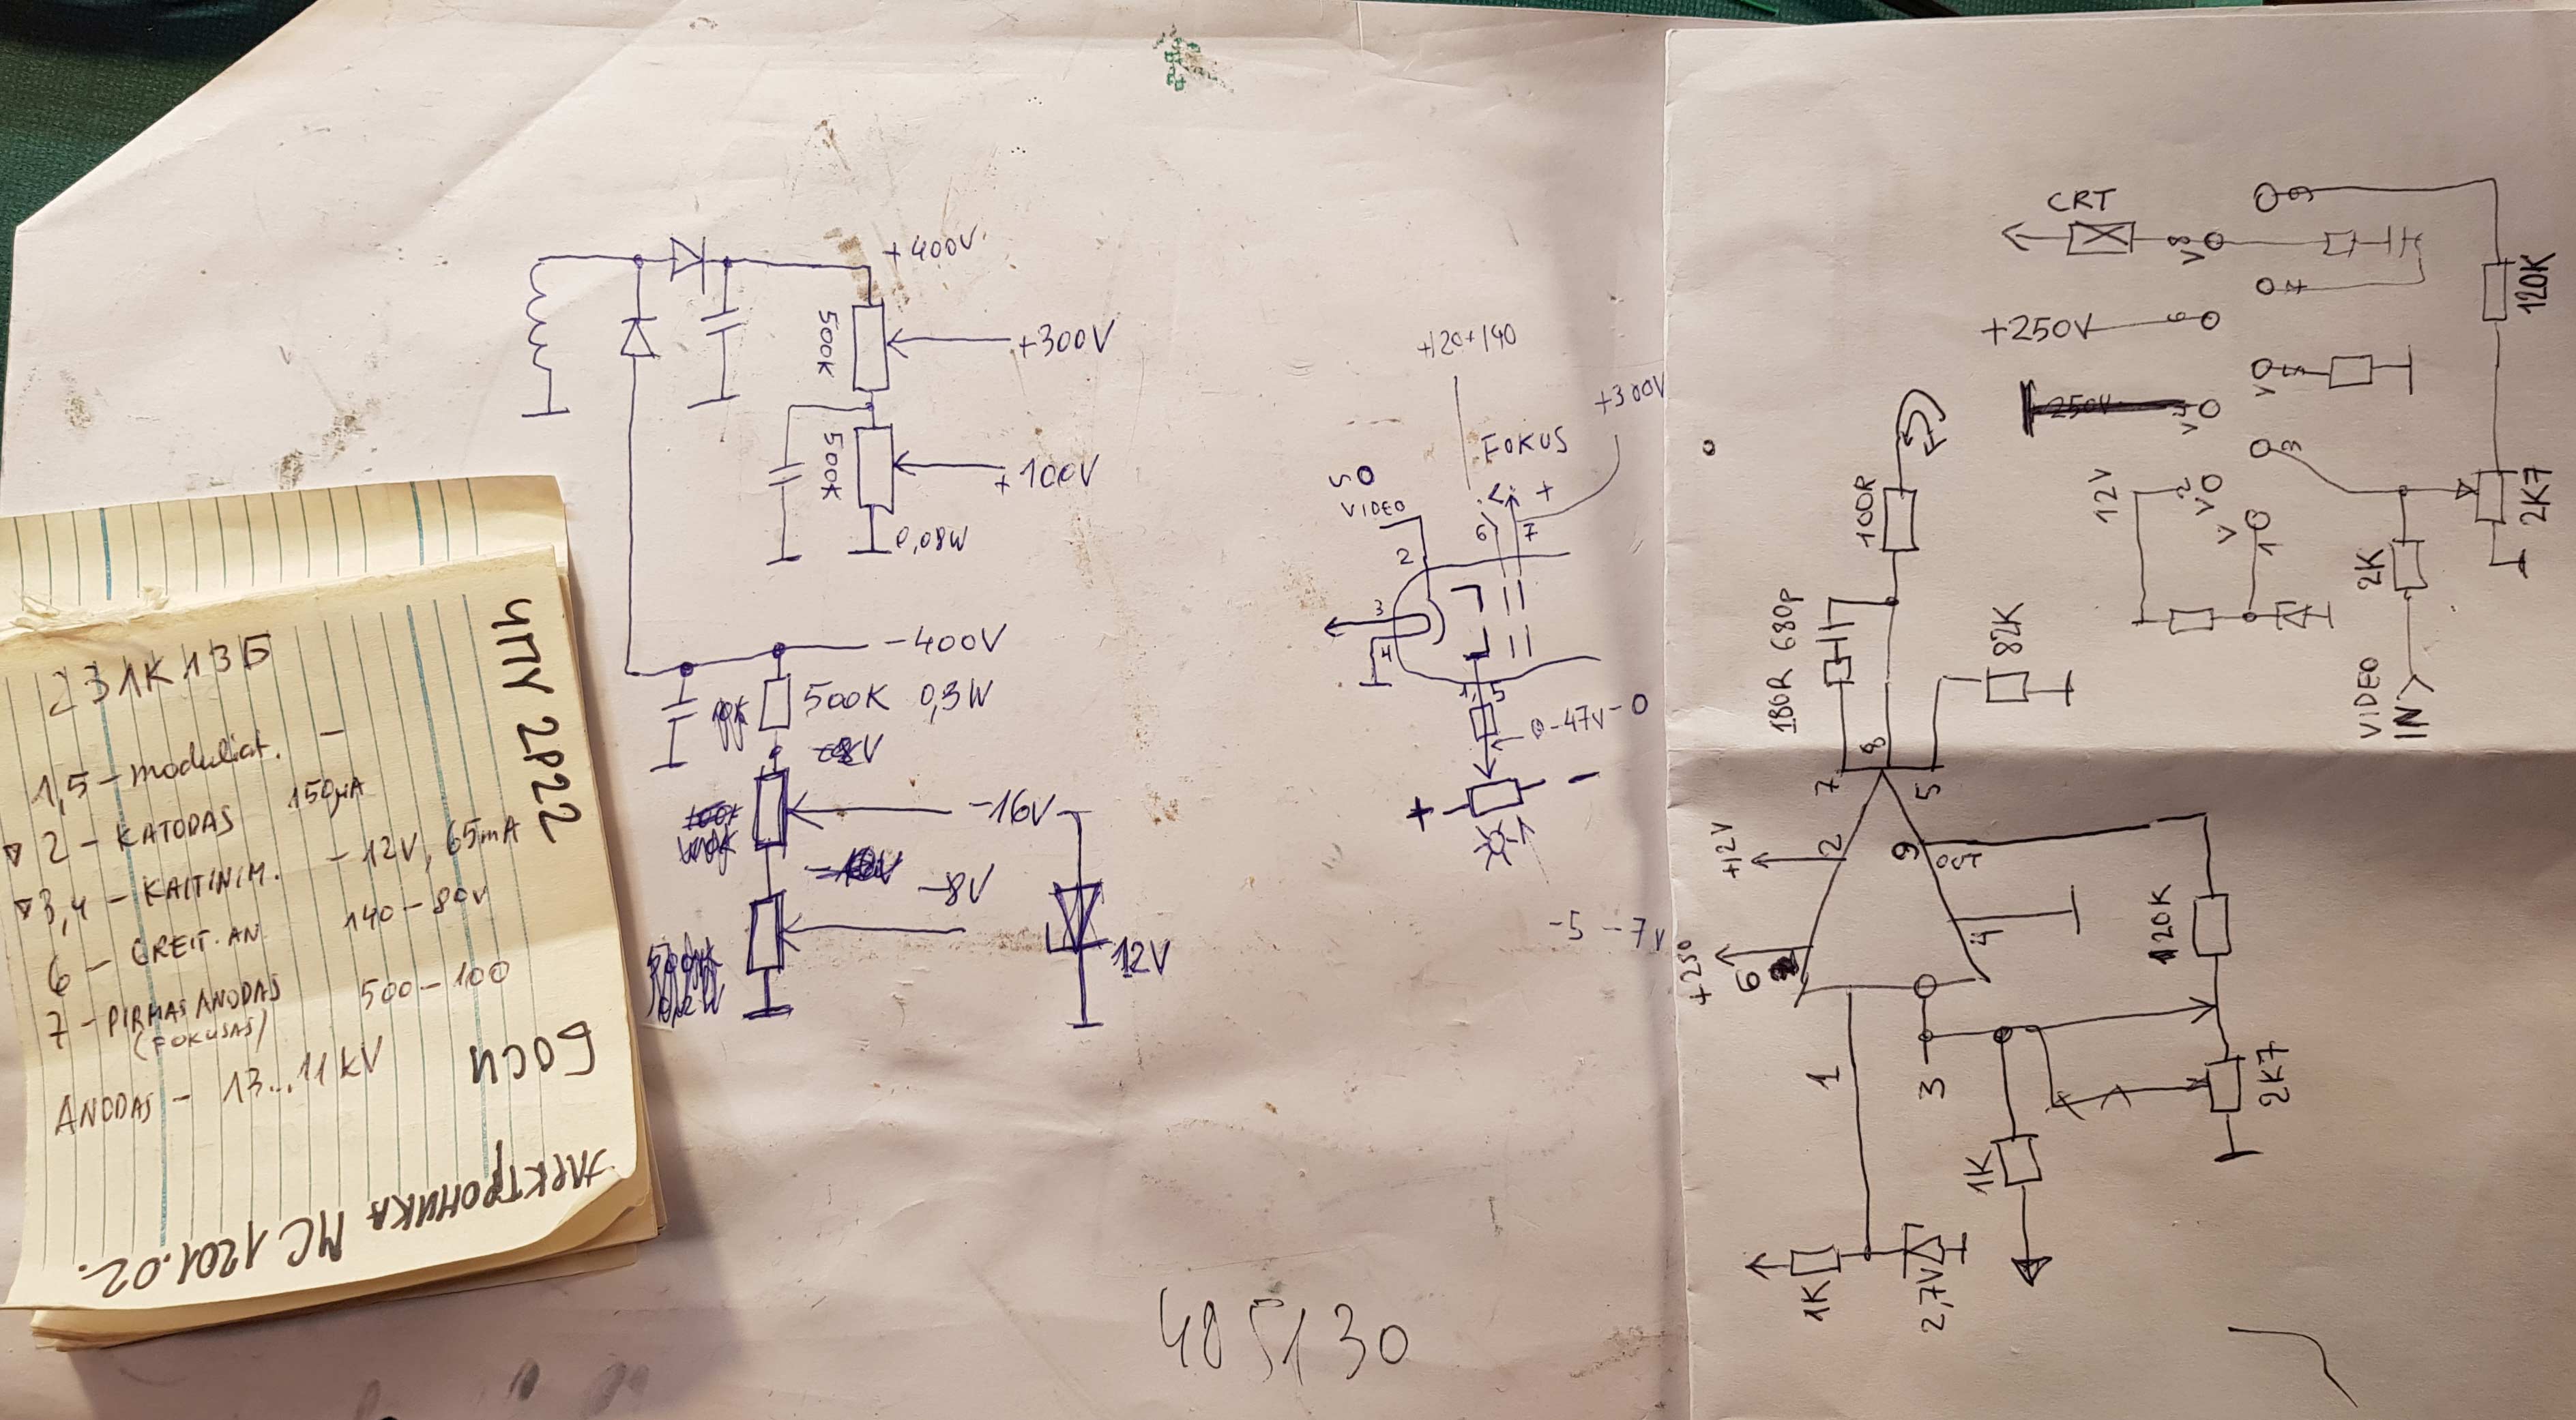 231K13Б
1,5 - moduliat. -
▽ 2 - KATODAS 150μA
▽ 3,4 - KAITINIM. - 12V, 65mA
6 - GREIT. AN 140-80V
7 - PIRMAS ANODAS 500-100
(FOKUSAS)
ANODAS - 13...11 kV
ЧПУ 2Р22
БОСИ
ЭЛЕКТРОНИКА МС 1201.02.
+400V
500K
+300V
500K
+100V
0,08W
-400V
500K 0,3W
-16V
-8V
12V
+120+140
+300V
FOKUS
50
VIDEO
+
6
7
2
3
4
1,5
0-47V-0
+
-
-5 -7V
405130
CRT
8
9
7
+250V
6
5
250V
4
3
12V
2
1
120K
2K7
2K
VIDEO
IN
100R
180R 680p
82K
7
8
5
+12V
2
9
+250
6
4
1
3
120K
2K7
1K
1K
2,7V